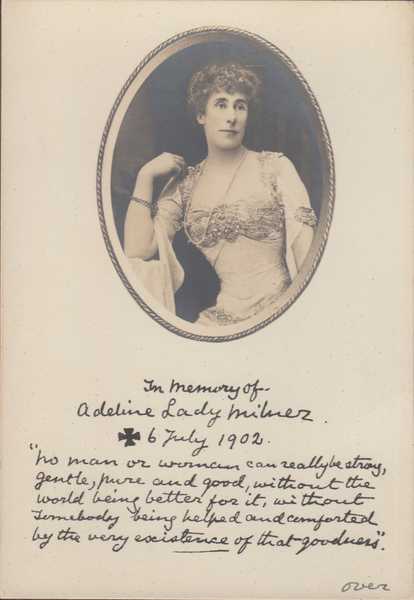 In Memory of-
Adeline Lady Milner.
✠ 6 July 1902.
"no man or woman can really be strong,
gentle, pure and good, without the
world being better for it, without
somebody being helped and comforted
by the very existence of that goodness".
over